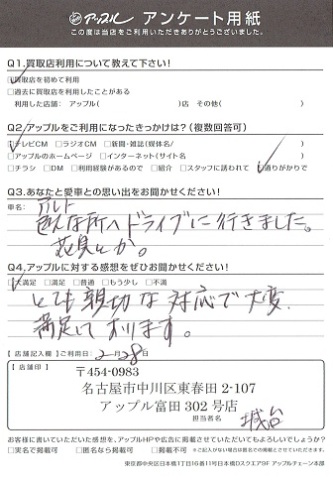 アップル アンケート用紙
この度は当店をご利用いただきありがとうございました。
Q1.買取店利用について教えて下さい!
□買取店を初めて利用
□過去に買取店を利用したことがある
利用した店舗: アップル( )店 その他( )
Q2.アップルをご利用になったきっかけは?(複数回答可)
□テレビCM □ラジオCM □新聞・雑誌(媒体名/ )
□アップルのホームページ □インターネット(サイト名 )
□チラシ □DM □利用経験があるので □紹介 □スタッフに誘われて □通りがかりで
Q3.あなたと愛車との思い出をお聞かせください!
車名: アルト
色んな所へドライブに行きました。
花見とか。
Q4.アップルに対する感想をぜひお聞かせください!
□大満足 □満足 □普通 □もう少し □不満
とても親切な対応で大変
満足しております。
【店舗記入欄】ご利用日: 2月28日
【店舗印】
〒454-0983
名古屋市中川区東春田 2-107
アップル富田 302 号店
担当者名
お客様に書いていただいた感想を、アップルHPや広告に掲載させていただいてもよろしいでしょうか?
□実名で掲載可 □匿名なら掲載可 □掲載不可 ※ご記入がない場合は匿名での掲載とさせていただきます。
東京都中央区日本橋1丁目16番11号日本橋Dスクエア9F アップルチェーン本部